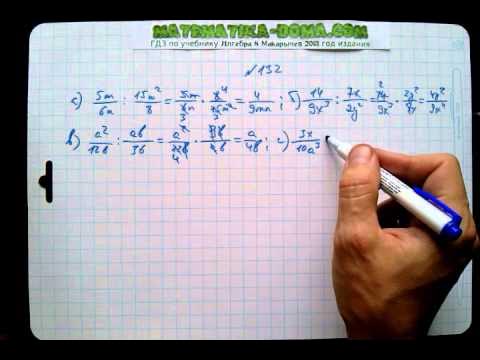 MATEMATIKA-DOMA.COM
ГДЗ по учебнику Алгебра 8 Макарычев 2013 год издания
№ 132
а) 5m/6n : 15m²/8 = 5m/6n · 8/15m² = 4/9mn ; б) 14/9x³ : 7x/2y² = 14/9x³ · 2y²/7x = 4y²/9x⁴
в) a²/12b : ab/36 = a²/12b · = a/4b ; г) 3x/10a³